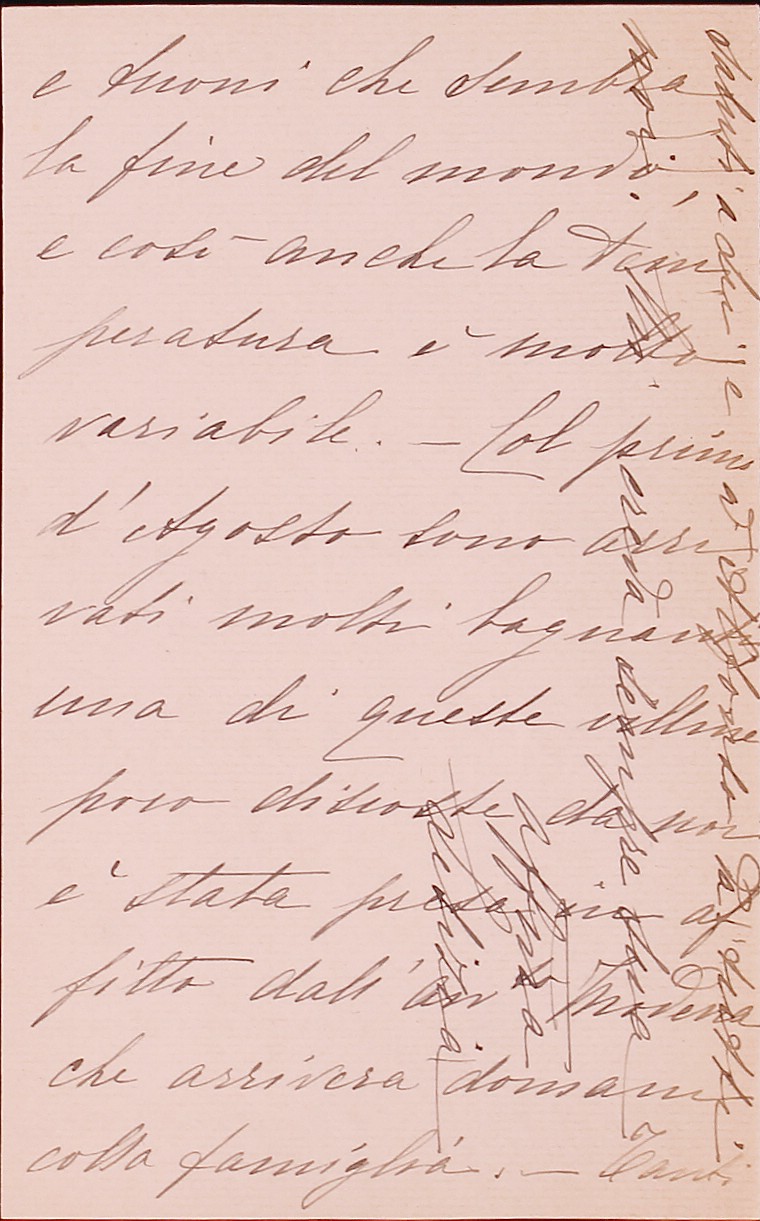 e tuoni che sembra
la fine del mondo,
e così anche la tem
peratura è molto
variabile. — Col primo
d'Agosto sono arri
vati molti bagnanti
una di queste villine
poco discoste da noi
è stata presa in af
fitto dall'av Modena
che arriverà domani
colla famiglia. — Tanti
saluti a
e
credi sempre tua
affza
amica